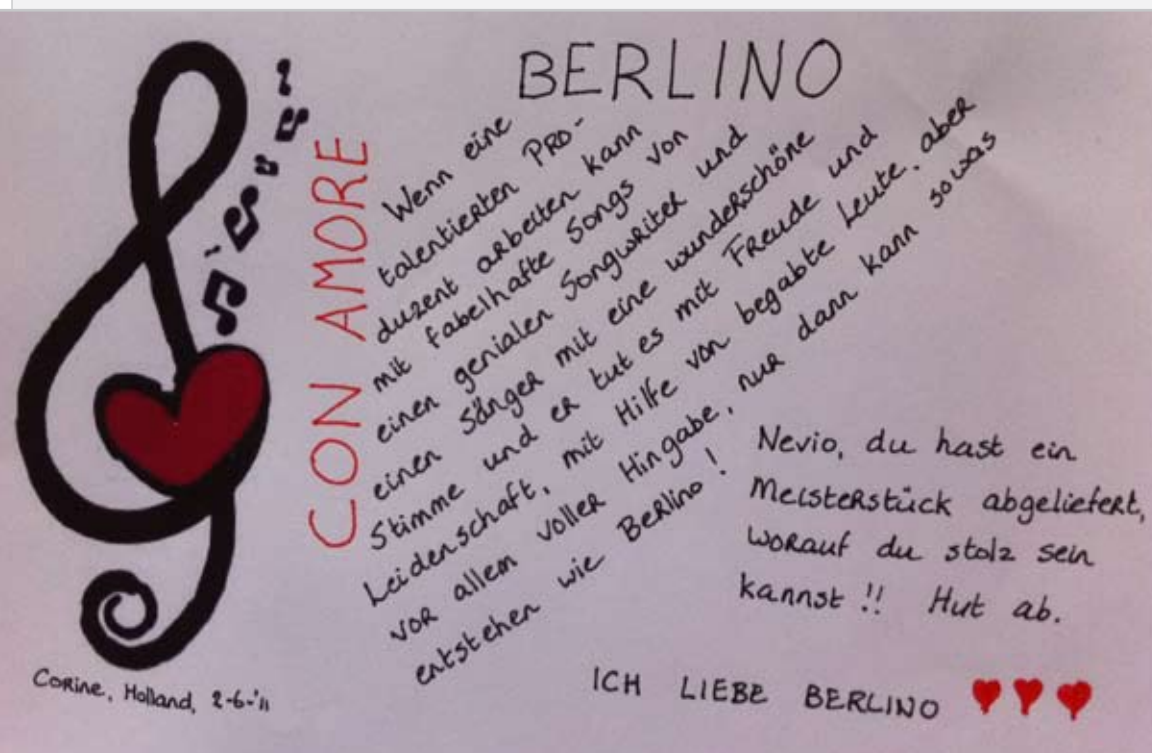 BERLINO
CON AMORE
Wenn eine
talentierten Pro-
duzent arbeiten kann
mit fabelhafte Songs von
einen genialen Songwriter und
einen Sänger mit eine wunderschöne
Stimme und er tut es mit Freude und
Leidenschaft, mit Hilfe von begabte Leute. aber
vor allem voller Hingabe, nur dann kann sowas
entstehen wie Berlino!
Nevio, du hast ein
Meisterstück abgeliefert,
worauf du stolz sein
kannst!! Hut ab.
ICH LIEBE BERLINO
Corine, Holland, 2-6-'11